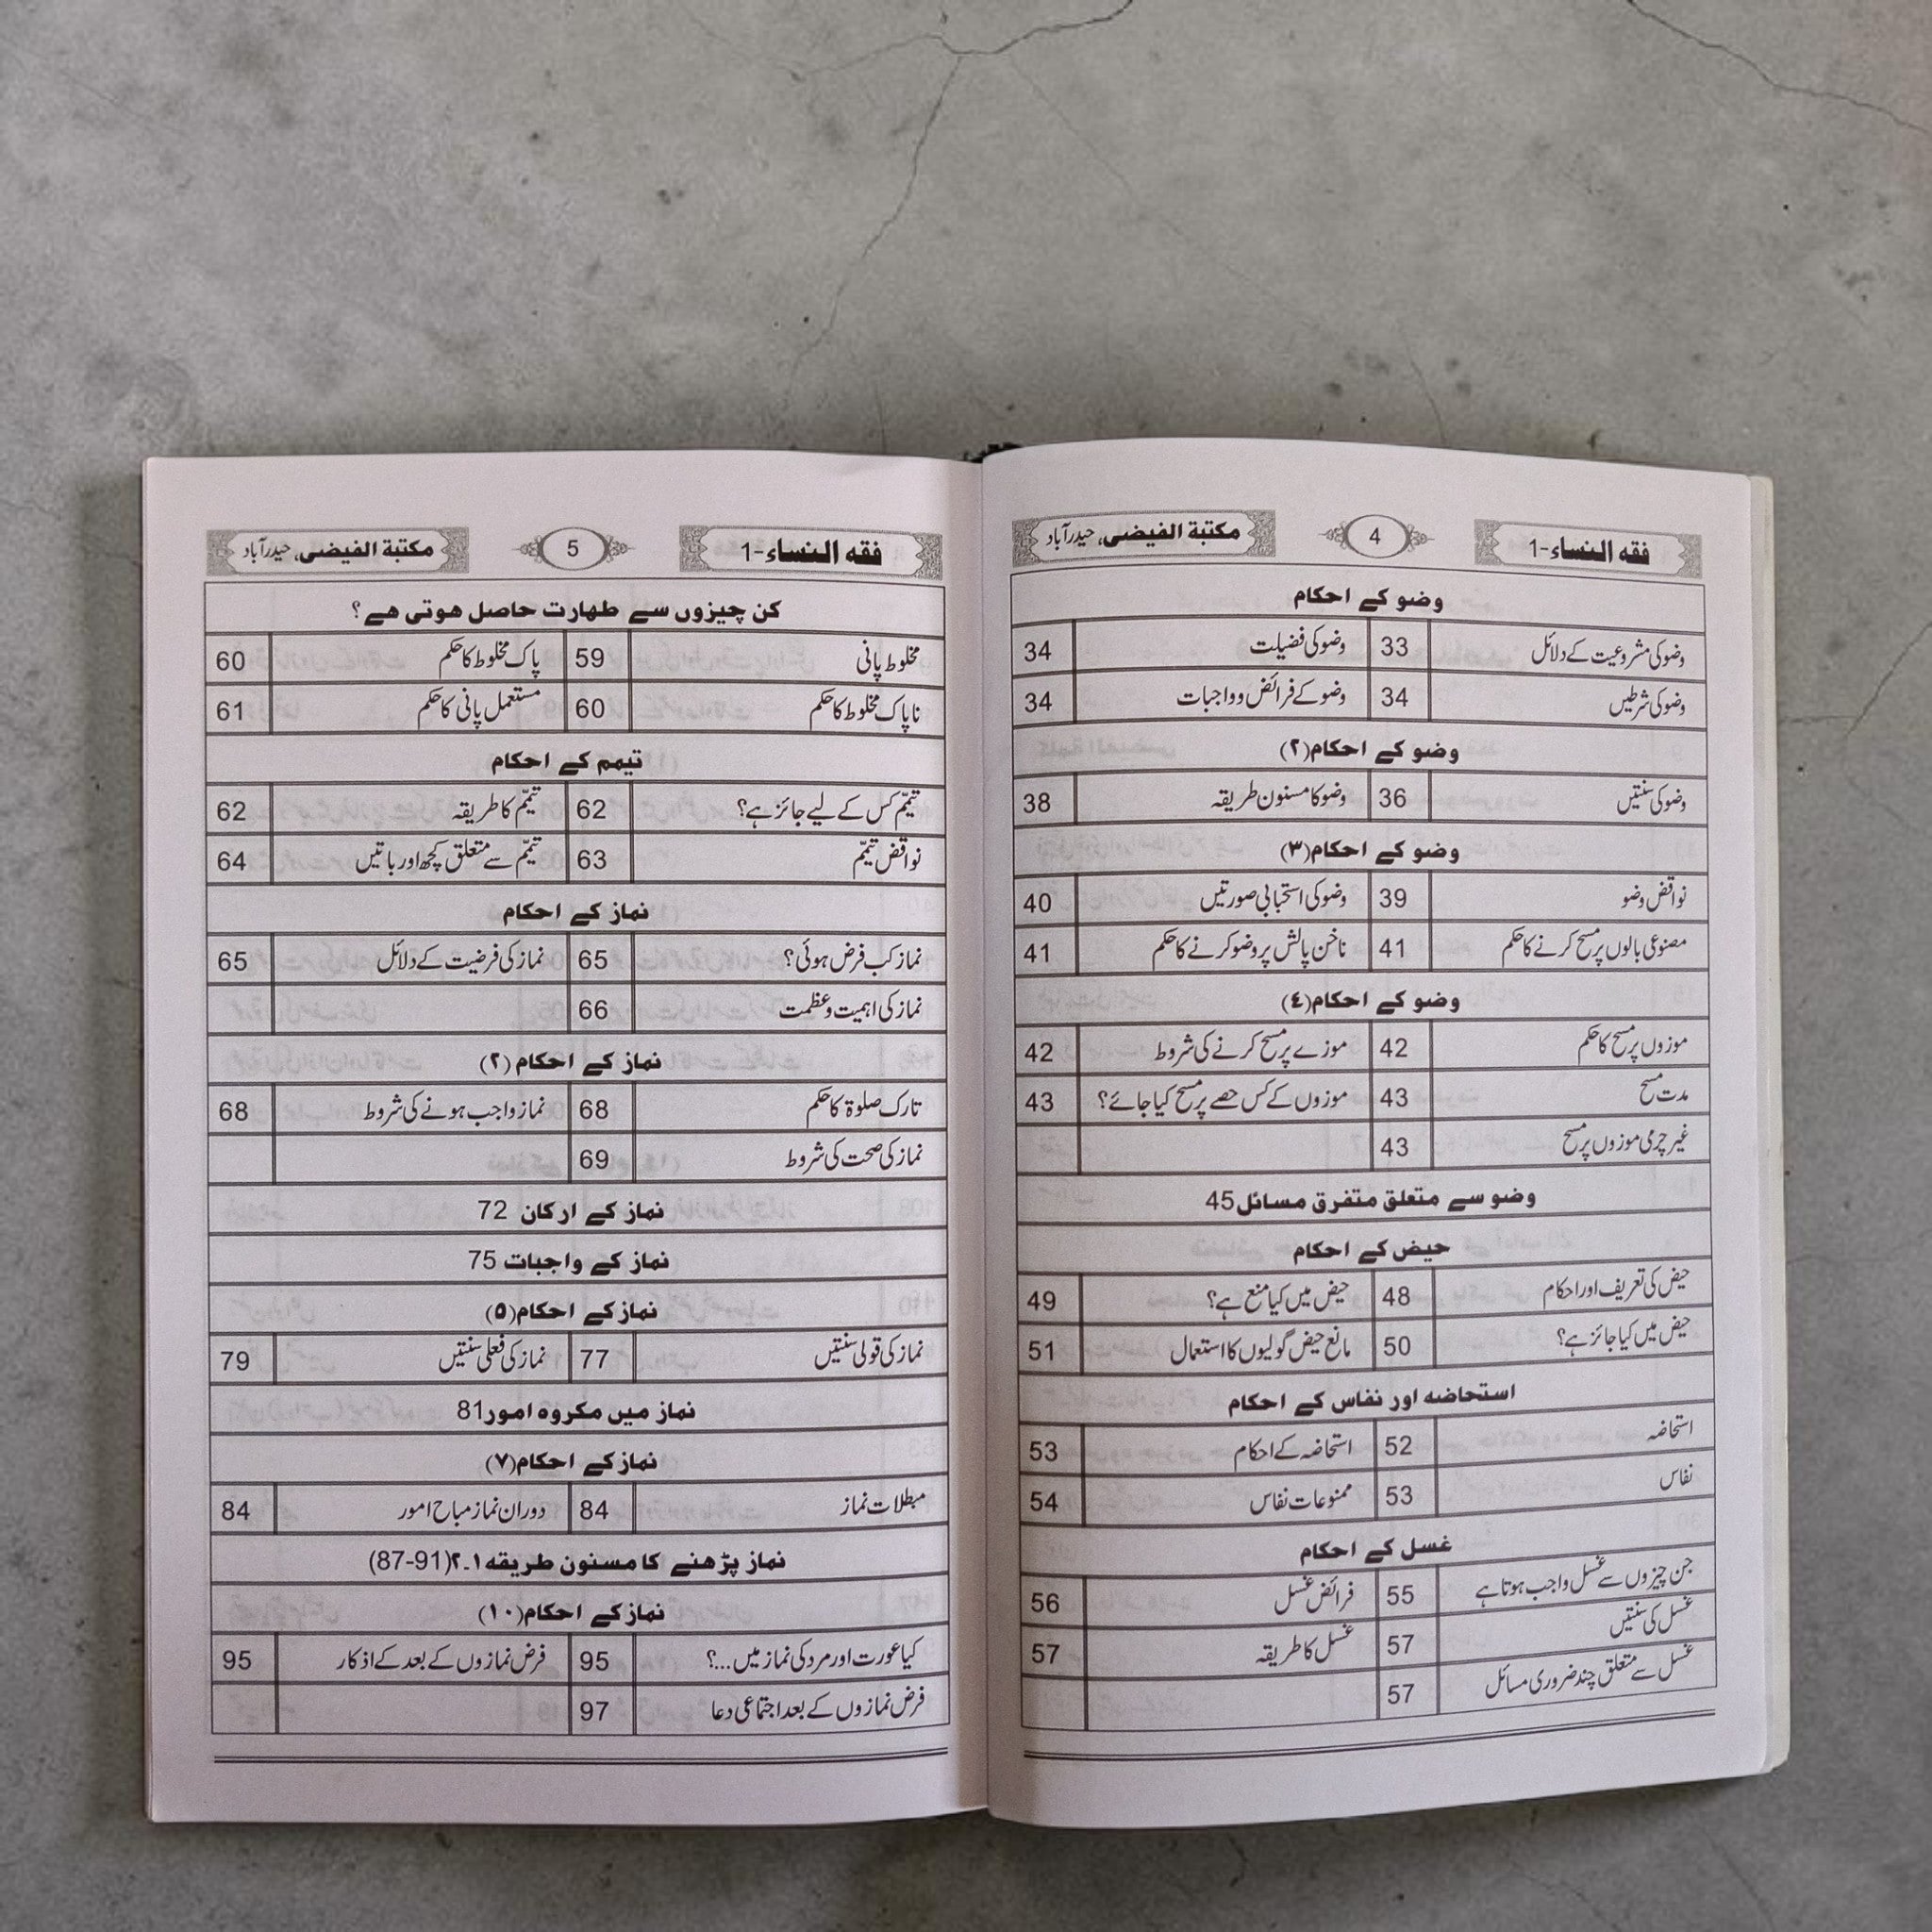 فقه النساء-1 4 مكتبة الفيضى، حیدرآباد
وضو کے احکام
وضو کی مشروعیت کے دلائل 33 وضو کی فضیلت 34
وضو کی شرطیں 34 وضو کے فرائض و واجبات 34
وضو کے احکام(٢)
وضو کی سنتیں 36 وضو کا مسنون طریقہ 38
وضو کے احکام(٣)
نواقض وضو 39 وضو کی استحبابی صورتیں 40
مصنوعی بالوں پر مسح کرنے کا حکم 41 ناخن پالش پر وضو کرنے کا حکم 41
وضو کے احکام(٤)
موزوں پر مسح کا حکم 42 موزے پر مسح کرنے کی شروط 42
مدت مسح 43 موزوں کے کس حصے پر مسح کیا جائے؟ 43
غیر چرمی موزوں پر مسح 43
وضو سے متعلق متفرق مسائل45
حیض کے احکام
حیض کی تعریف اور احکام 48 حیض میں کیا منع ہے؟ 49
حیض میں کیا جائز ہے؟ 50 مانع حیض گولیوں کا استعمال 51
استحاضہ اور نفاس کے احکام
استحاضہ 52 استحاضہ کے احکام 53
نفاس 53 ممنوعات نفاس 54
غسل کے احکام
جن چیزوں سے غسل واجب ہوتا ہے 55 فرائض غسل 56
غسل کی سنتیں 57 غسل کا طریقہ 57
غسل سے متعلق چند ضروری مسائل 57
فقه النساء-1 5 مكتبة الفيضى، حیدرآباد
کن چیزوں سے طہارت حاصل ہوتی ہے؟
مخلوط پانی 59 پاک مخلوط کا حکم 60
ناپاک مخلوط کا حکم 60 مستعمل پانی کا حکم 61
تیمم کے احکام
تیمّم کس کے لیے جائز ہے؟ 62 تیمّم کا طریقہ 62
نواقض تیمّم 63 تیمّم سے متعلق کچھ اور باتیں 64
نماز کے احکام
نماز کب فرض ہوئی؟ 65 نماز کی فرضیت کے دلائل 65
نماز کی اہمیت و عظمت 66
نماز کے احکام (٢)
تارک صلوۃ کا حکم 68 نماز واجب ہونے کی شروط 68
نماز کی صحت کی شروط 69
نماز کے ارکان 72
نماز کے واجبات 75
نماز کے احکام(٥)
نماز کی قولی سنتیں 77 نماز کی فعلی سنتیں 79
نماز میں مکروہ امور81
نماز کے احکام(٧)
مبطلات نماز 84 دوران نماز مباح امور 84
نماز پڑھنے کا مسنون طریقہ ١۔٢(87-91)
نماز کے احکام(١٠)
کیا عورت اور مرد کی نماز میں...؟ 95 فرض نمازوں کے بعد کے اذکار 95
فرض نمازوں کے بعد اجتماعی دعا 97